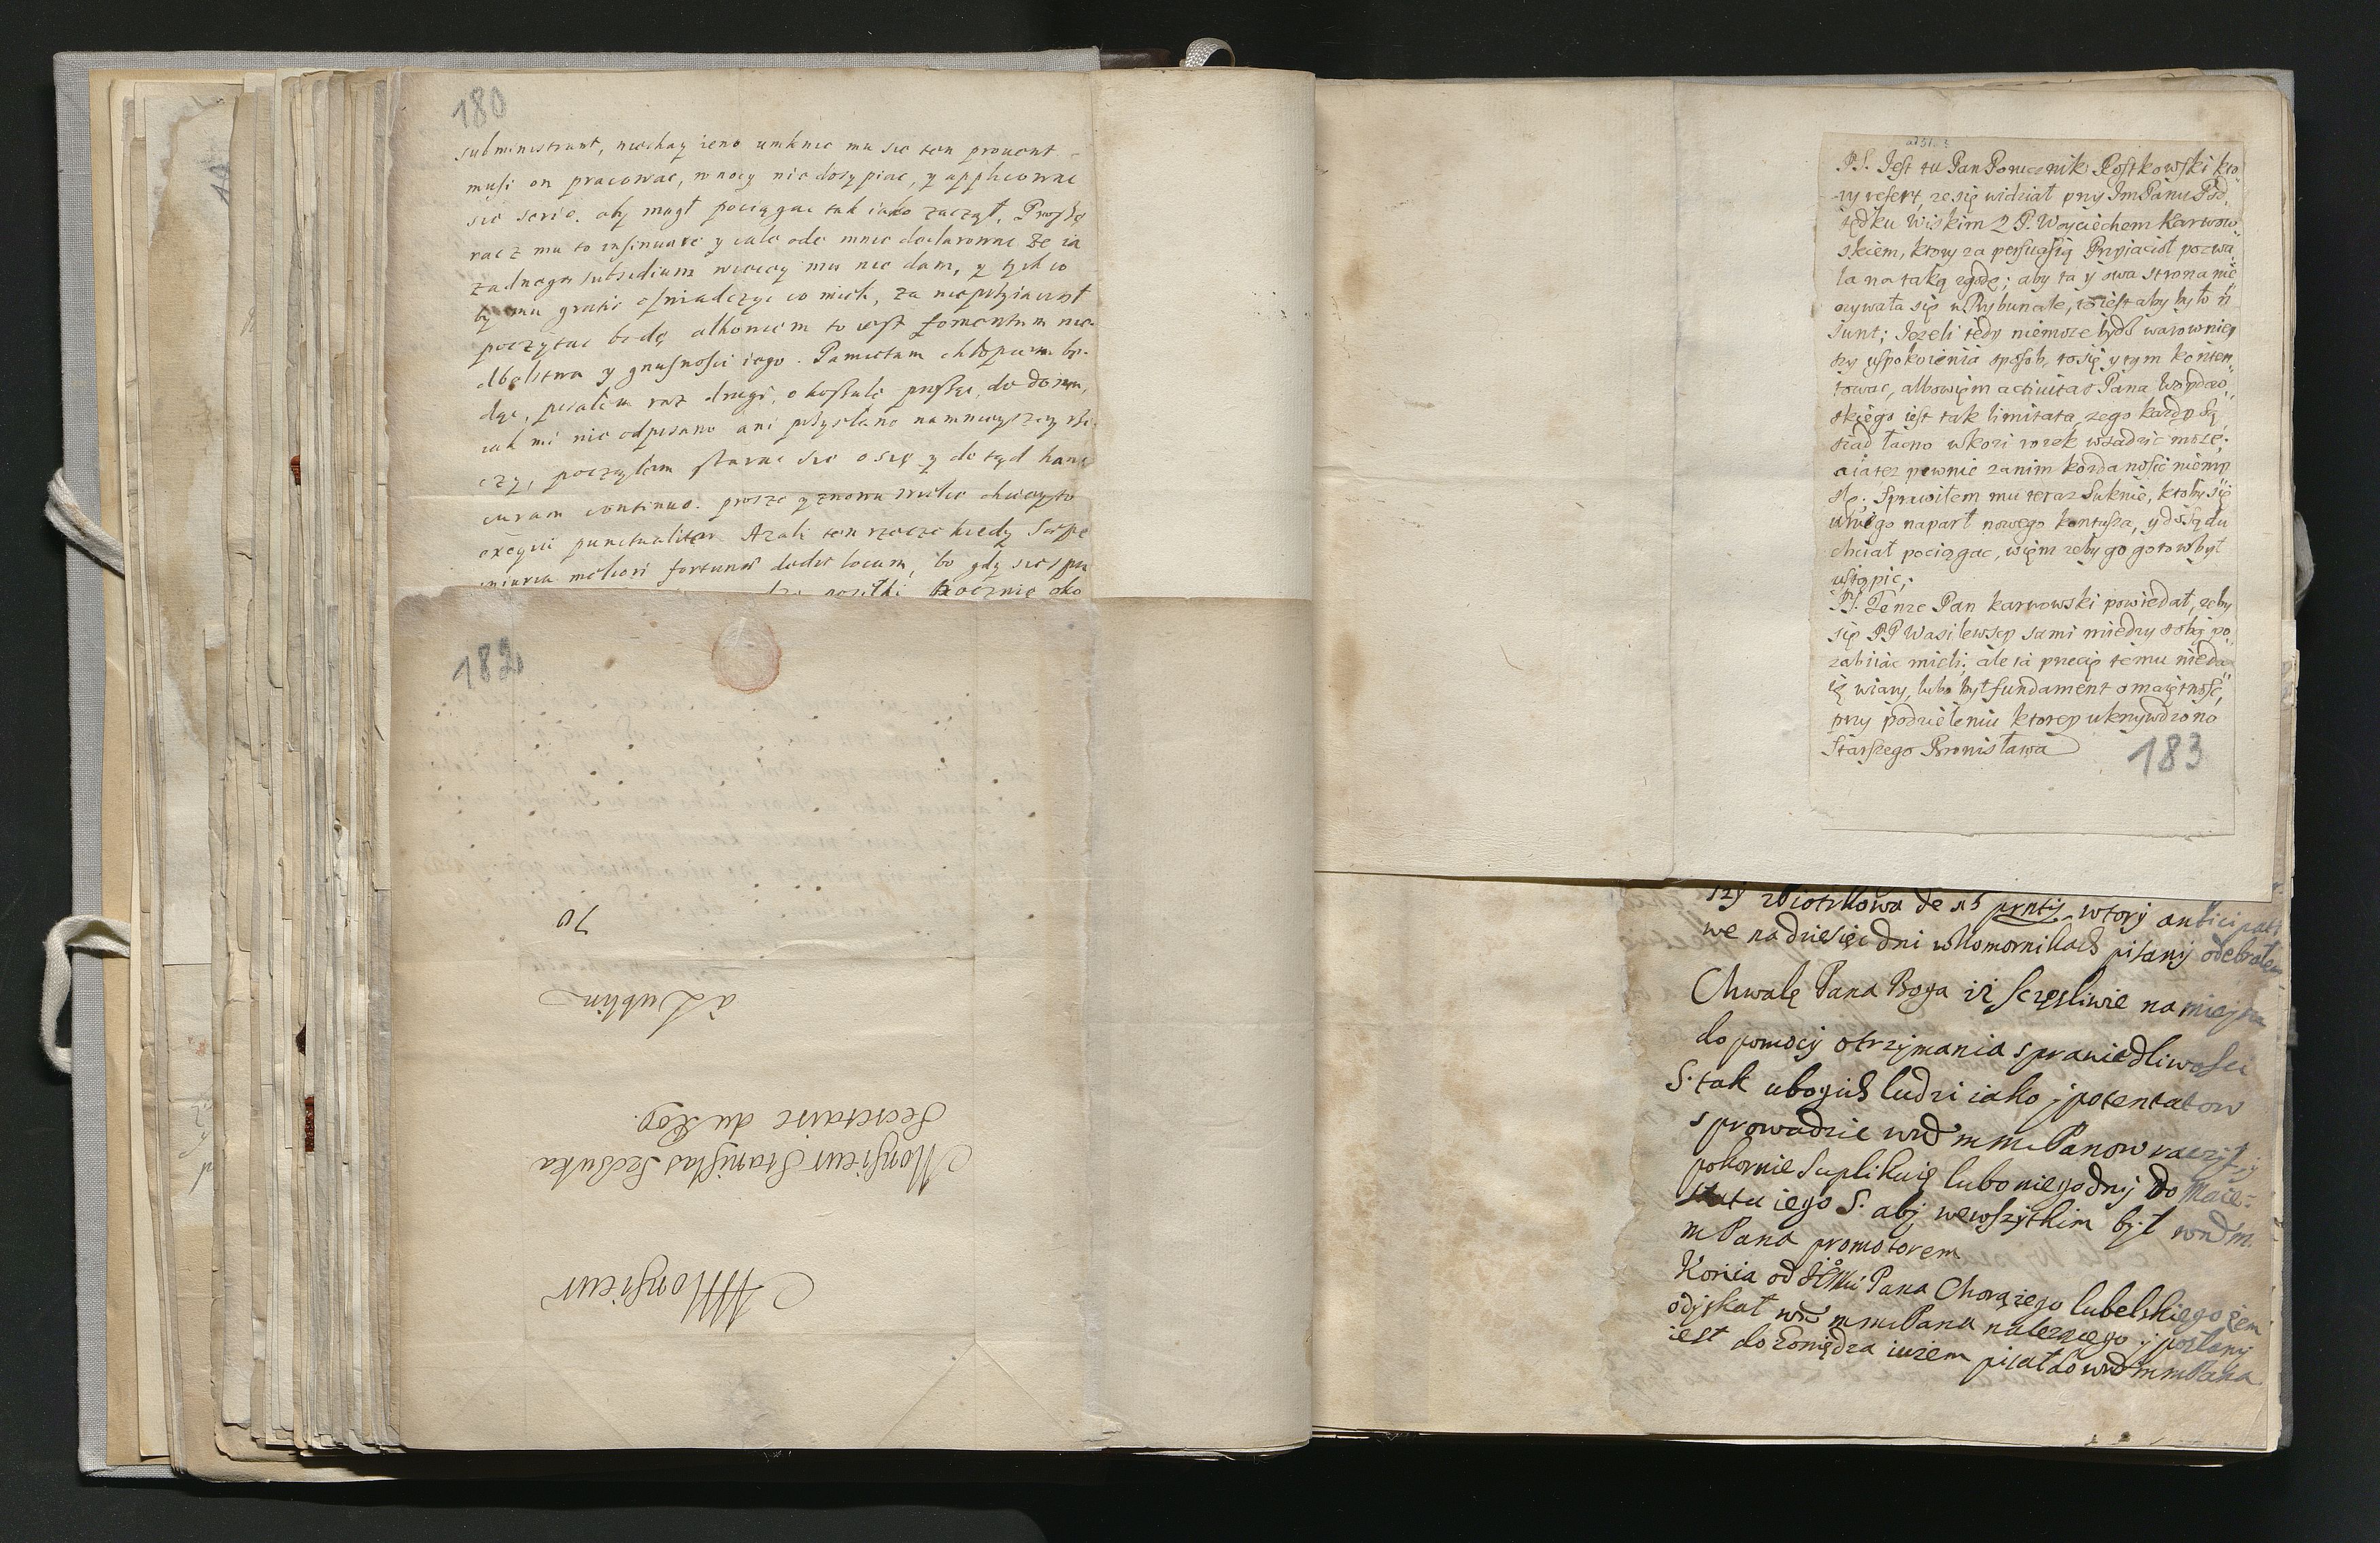 180
subministrant, niechay ieno umknie mu sie ten prouent
musi on pracowac, w nocy nie dosypiac, y applicowac
sie serio. aby mogł pociągac tak iako zaczął. Proszę
racz mu to insinuare y cale ode mnie declarowac że ia
żadnego subsidium wiecey mu nie dam, y tych co
by mu gratis osniadczyc co mieli, za nieprzyiaciół
poczytac będę albowiem to iest fomentum nie-
dbalstwa y gnusnosci iego. Pamietam chłopcem bę-
dąc, pisałem raz drugi, o koszule prosząc, do domu,
iak mi nie odpisano ani przysłano namnieyszey rze-
czy, począłem starac sie o się y do tąd hanc
curam continuo. prosze y znowu
exequi punctualiter. Azali ten rzecze kiedy Saepe
iniuria meliori fortunae dedit locum, bo gdy sie spu
posiłki
182
70
à Lublin
Secretaire du Roy.
Monsieur Stanislas
Monsieur
PS. Jest tu Pan Porucznik Rostkowski kto-
-ry refert, ze się widział przy Im Panu Pod,
sędku Wiskim z P. Woyciechem Karwow,
skiem, ktory za persuasią Przyiaciół pozwa,
la na taką zgodę; aby ta y owa strona nie
ozywała się w Trybunale, to iest aby było
sunt; Jezeli tedy niemoze bydź warowniey
szy uspokoienia sposob, to się y tym konten,
towac, albowiem activitas Pana
skiego iest tak limitata, zego kazdy Są
siad łacno w kozi rozek wsadzic moze;
a ia tez pewnie za nim korda nosic niemy
slę. Sprawiłem mu teraz Suknie, ktoby się
u niego naparł nowego kontusza, y do Sądu
chciał pociągac, więm zeby go gotow był
ustąpic;
PS. Tenze Pan Karwowski powiedał, zeby
się PP Wasilewscy sami miedzy sobą po,
zabiiac mieli; ale ia przecię temu nieda
ię wiary, lubo był fundament o maiętnosc,
przy podzieleniu ktorey ukrzywdzono
Starszego Bronisława
183
we na dziesięc dni w Komornikach pisany odebrałem
Chwalę Pana Boga iż sczęsliwie na mieysce
do pomocy otrzymania sprawiedliwosci
S. tak ubogich ludzi iako y potentatow
sprowadzic wm m m Panow raczył, y
pokornie Suplikuię lubo niegodny do Maie=
statu iego S. aby we wszytkim był wm m
m Pana promotorem
Konia od Pana Chorązego lubelskiego żem
odyskał wm m m Pana nalezącego y posłany
iest do Goniądza iużem pisał do wm m m Pana